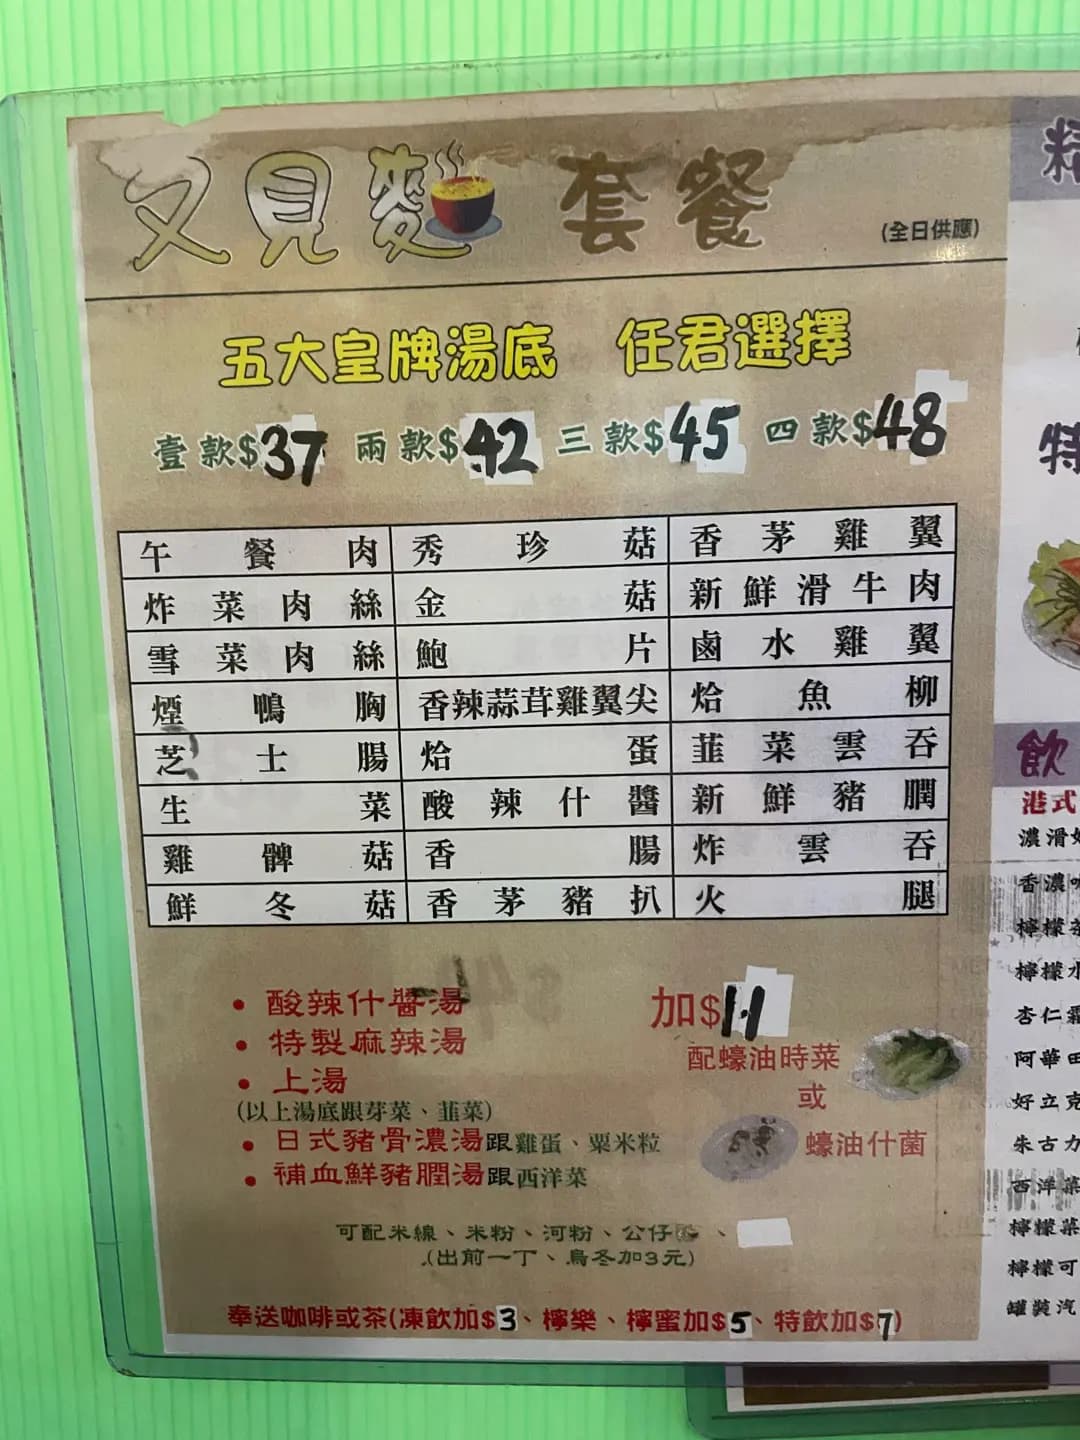 又見麵 套餐 (全日供應)
五大皇牌湯底 任君選擇
壹款$37 兩款$42 三款$45 四款$48
午餐肉 秀珍菇 香茅雞翼
炸菜肉絲 金菇 新鮮滑牛肉
雪菜肉絲 鮑片 鹵水雞翼
煙鴨胸 香辣蒜茸雞翼尖 烚魚柳
芝士腸 烚蛋 韮菜雲吞
生菜 酸辣什醬 新鮮豬膶
雞髀菇 香腸 炸雲吞
鮮冬菇 香茅豬扒 火腿
• 酸辣什醬湯
• 特製麻辣湯
• 上湯
(以上湯底跟芽菜、韮菜)
• 日式豬骨濃湯跟雞蛋、粟米粒
• 補血鮮豬膶湯跟西洋菜
加$11
配蠔油時菜
或
蠔油什菌
可配米線、米粉、河粉、公仔 、
(出前一丁、烏冬加3元)
奉送咖啡或茶(凍飲加$3、檸樂、檸蜜加$5、特飲加$7)
精
特
飲
港式
濃滑
香濃
檸檬茶
檸檬水
杏仁霜
阿華田
好立克
朱古力
西洋菜
檸檬菜
檸檬可
罐裝汽